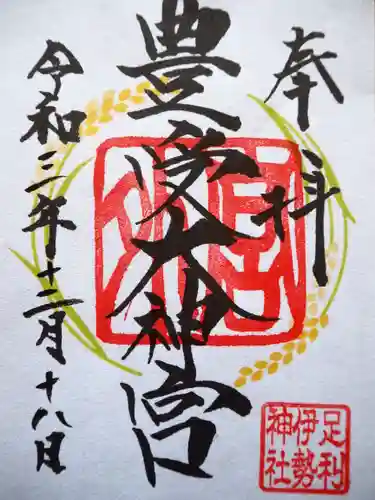 奉拝
豊受大神宮
令和三年十二月十八日
外宮
足利
伊勢
神社